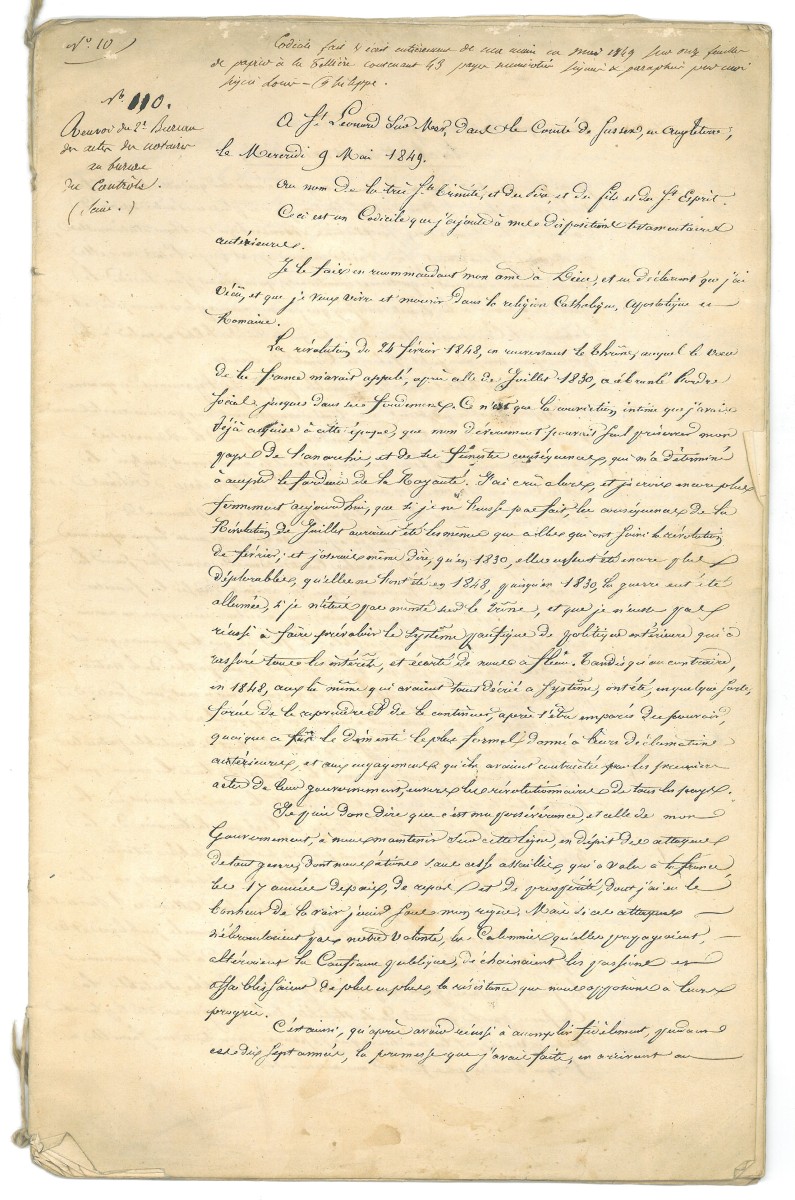 N.° 10
Codicile fait & écrit entièrement de ma main en mai 1849 sur onze feuilles
de papier à la Tellière contenant 43 pages numérotées signées & paraphées par moi
signé Louis-Philippe.
N.° 110.
Renvoi du 2.e Bureau
des actes des notaires
au bureau
du Contrôle.
(Seine.)
A S.t Léonard sur Mer, dans le Comté de Sussex, en Angleterre,
le Mercredi 9 Mai 1849.
Au nom de la très S.te Trinité, et du Père, et du fils et du S.t Esprit.
Ceci est un Codicile que j'ajoute à mes dispositions testamentaires
antérieures.
Je le fais en recommandant mon âme à Dieu, et en déclarant que j'ai
vécu, et que je veux vivre et mourir dans la religion Catholique, Apostolique et
Romaine.
La révolution du 24 février 1848, en renversant le thrône, auquel le vœu
de la france m'avait appelé, après celle de Juillet 1830, a ébranlé l'ordre
social jusques dans ses fondemens. Ce n'est que la conviction intime que j'avais
déjà acquise à cette époque, que mon dévouement pouvait seul préserver mon
pays de l'anarchie, et de ses funestes conséquences, qui m'a déterminé
à accepter le fardeau de la Royauté. J'ai crû alors, et je crois encore plus
fermement aujourdhui, que si je ne l'eusse pas fait, les conséquences de la
Révolution de Juillet auraient été les mêmes que celles qui ont suivi la révolution
de février; et j'oserais même dire, qu'en 1830, elles eussent été encore plus
déplorables, qu'elles ne l'ont été en 1848, puisqu'en 1830, la guerre eut été
allumée, si je n'étais pas monté sur le trône, et que je n'eusse pas
réussi à faire prévaloir le système pacifique de politique extérieure qui a
rassuré tous les intérêts, et écarté de nous ce fléau. Tandis qu'au contraire,
en 1848, ceux là même qui avaient tant décrié ce système, ont été, en quelque sorte,
forcés de le reprendre et de le continuer, après s'être emparés du pouvoir,
quoique ce fut le démenti le plus formel donné à leurs déclamations
antérieures, et aux engagemens qu'ils avaient contractés par les premiers
actes de leur gouvernement, envers les révolutionnaires de tous les pays.
Je puis donc dire que c'est ma persévérance, et celle de mon
Gouvernement, à nous maintenir sur cette ligne, en dépit des attaques
de tout genre, dont nous étions sans cesse assaillis, qui a valu à la france
les 17 années de paix, de repos et de prospérité, dont j'ai eu le
bonheur de la voir jouir sous mon règne. Mais si ces attaques
n'ébranlaient pas notre volonté, les Calomnies qu'elles propageaient,
altéraient la Confiance publique, déchainaient les passions et
affaiblissaient de plus en plus, la résistance que nous opposions à leurs
progrès.
C'est ainsi, qu'après avoir réussi à accomplir fidèlement, pendant
ces dix sept années, la promesse que j'avais faite, en arrivant au